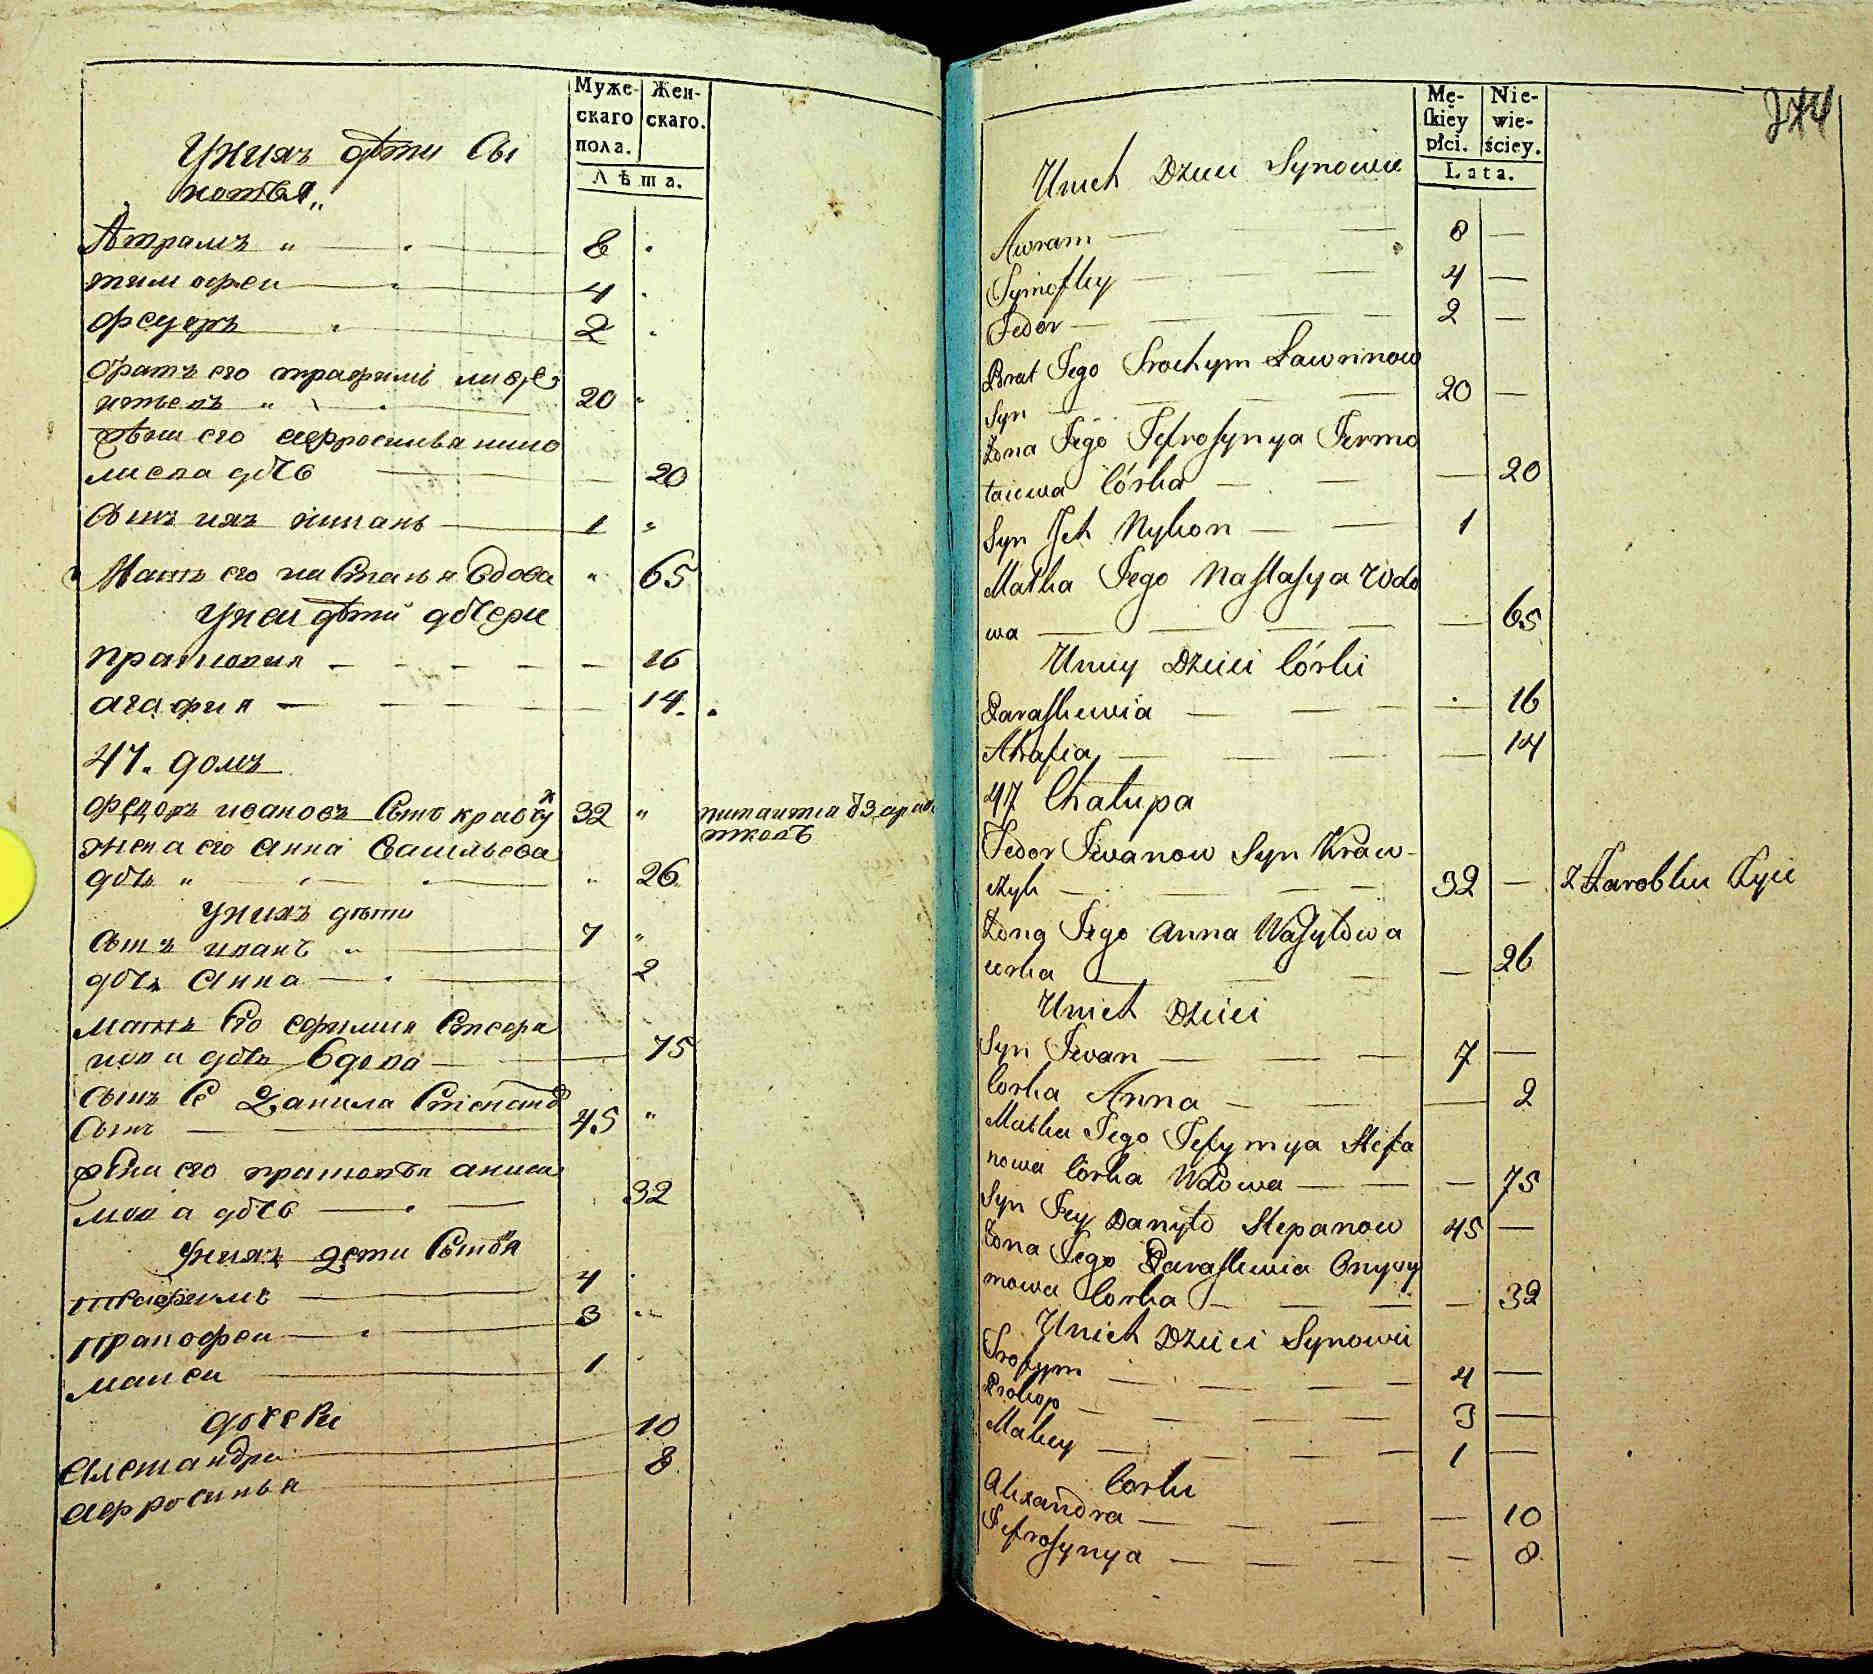 Муже-
скаго
пола.
Жен-
скаго.
Лѣта.
Унихъ дѣти Сы
новья„
Аврамъ „ 8
тимофеи 4
феѡдоръ 2
братъ его трафимъ
20
его ефросинья
дочь 20
Сынъ ихъ никонъ 1 „
Мать его настасья вдова „ 65
Унеи дѣти дочери
прасковия 16
агафия 14.
47. домъ
федоръ ивановъ Сынъ кравчу 32 „ питаится
жена его Анна Васильева
дочь „ 26
Унихъ дѣти
Сынъ иванъ „ 7 „
дочь Анна 2
мать Его ефимия Стефа
нова дочь вдова 75
Сынъ Ее Данила Степановъ
Сынъ 45 „
жена его прасковья
мова дочь 32
Унихъ дети Сыновя
трафимъ 4
3
макеи 1
дочеки
Александра 10
ефросинья 8
Mę-
skiéy
płci.
Nie-
wie-
ściey.
Lata.
274
Unich Dzieci Synowie
Awram 8
Tymofiey 4
Fedor 2
Brat Jego Trochym Ławrinow
Syn 20
Żona Jego Jefrosynya Jermo
łaiewa Córka 20
Syn Jch Nykon 1
Matka Jego Nastasya Wdo
wa 65
Unicy Dzieci Córki
Paraskewia 16
Ahafia 14
47 Chałupa
Fedor Jwanow Syn Kraw-
czyk 32 z Zarobku żyie
Żona Jego Anna Wasylowa
curka 26
Unich Dzieci
Syn Jwan 7
Corka Anna 2
Matka Jego Jefymya Stefa
nowa Córka Wdowa 75
Syn Jey Danyło Stepanow 45
Żona Jego Paraskewia Onysy
mowa Corka 32
Unich Dzieci Synowie
Trofym 4
Prokop 3
Makey 1
Corki
Alixandra 10
Jefrosynya 8